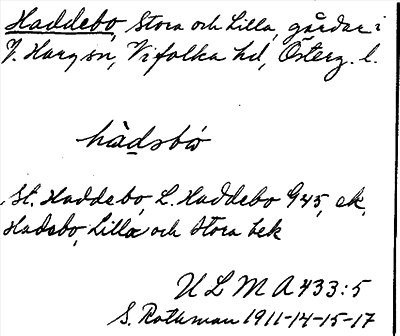 Haddebo, Stora och Lilla, gårdar i
V. Harg sn, Vifolka hd, Österg. l.
hàdsbó
St. Haddebo, L. Haddebo G45, ek.
Hadsbo, Lilla och Stora bek
ULMA 433:5
S. Rothman 1911-14-15-17